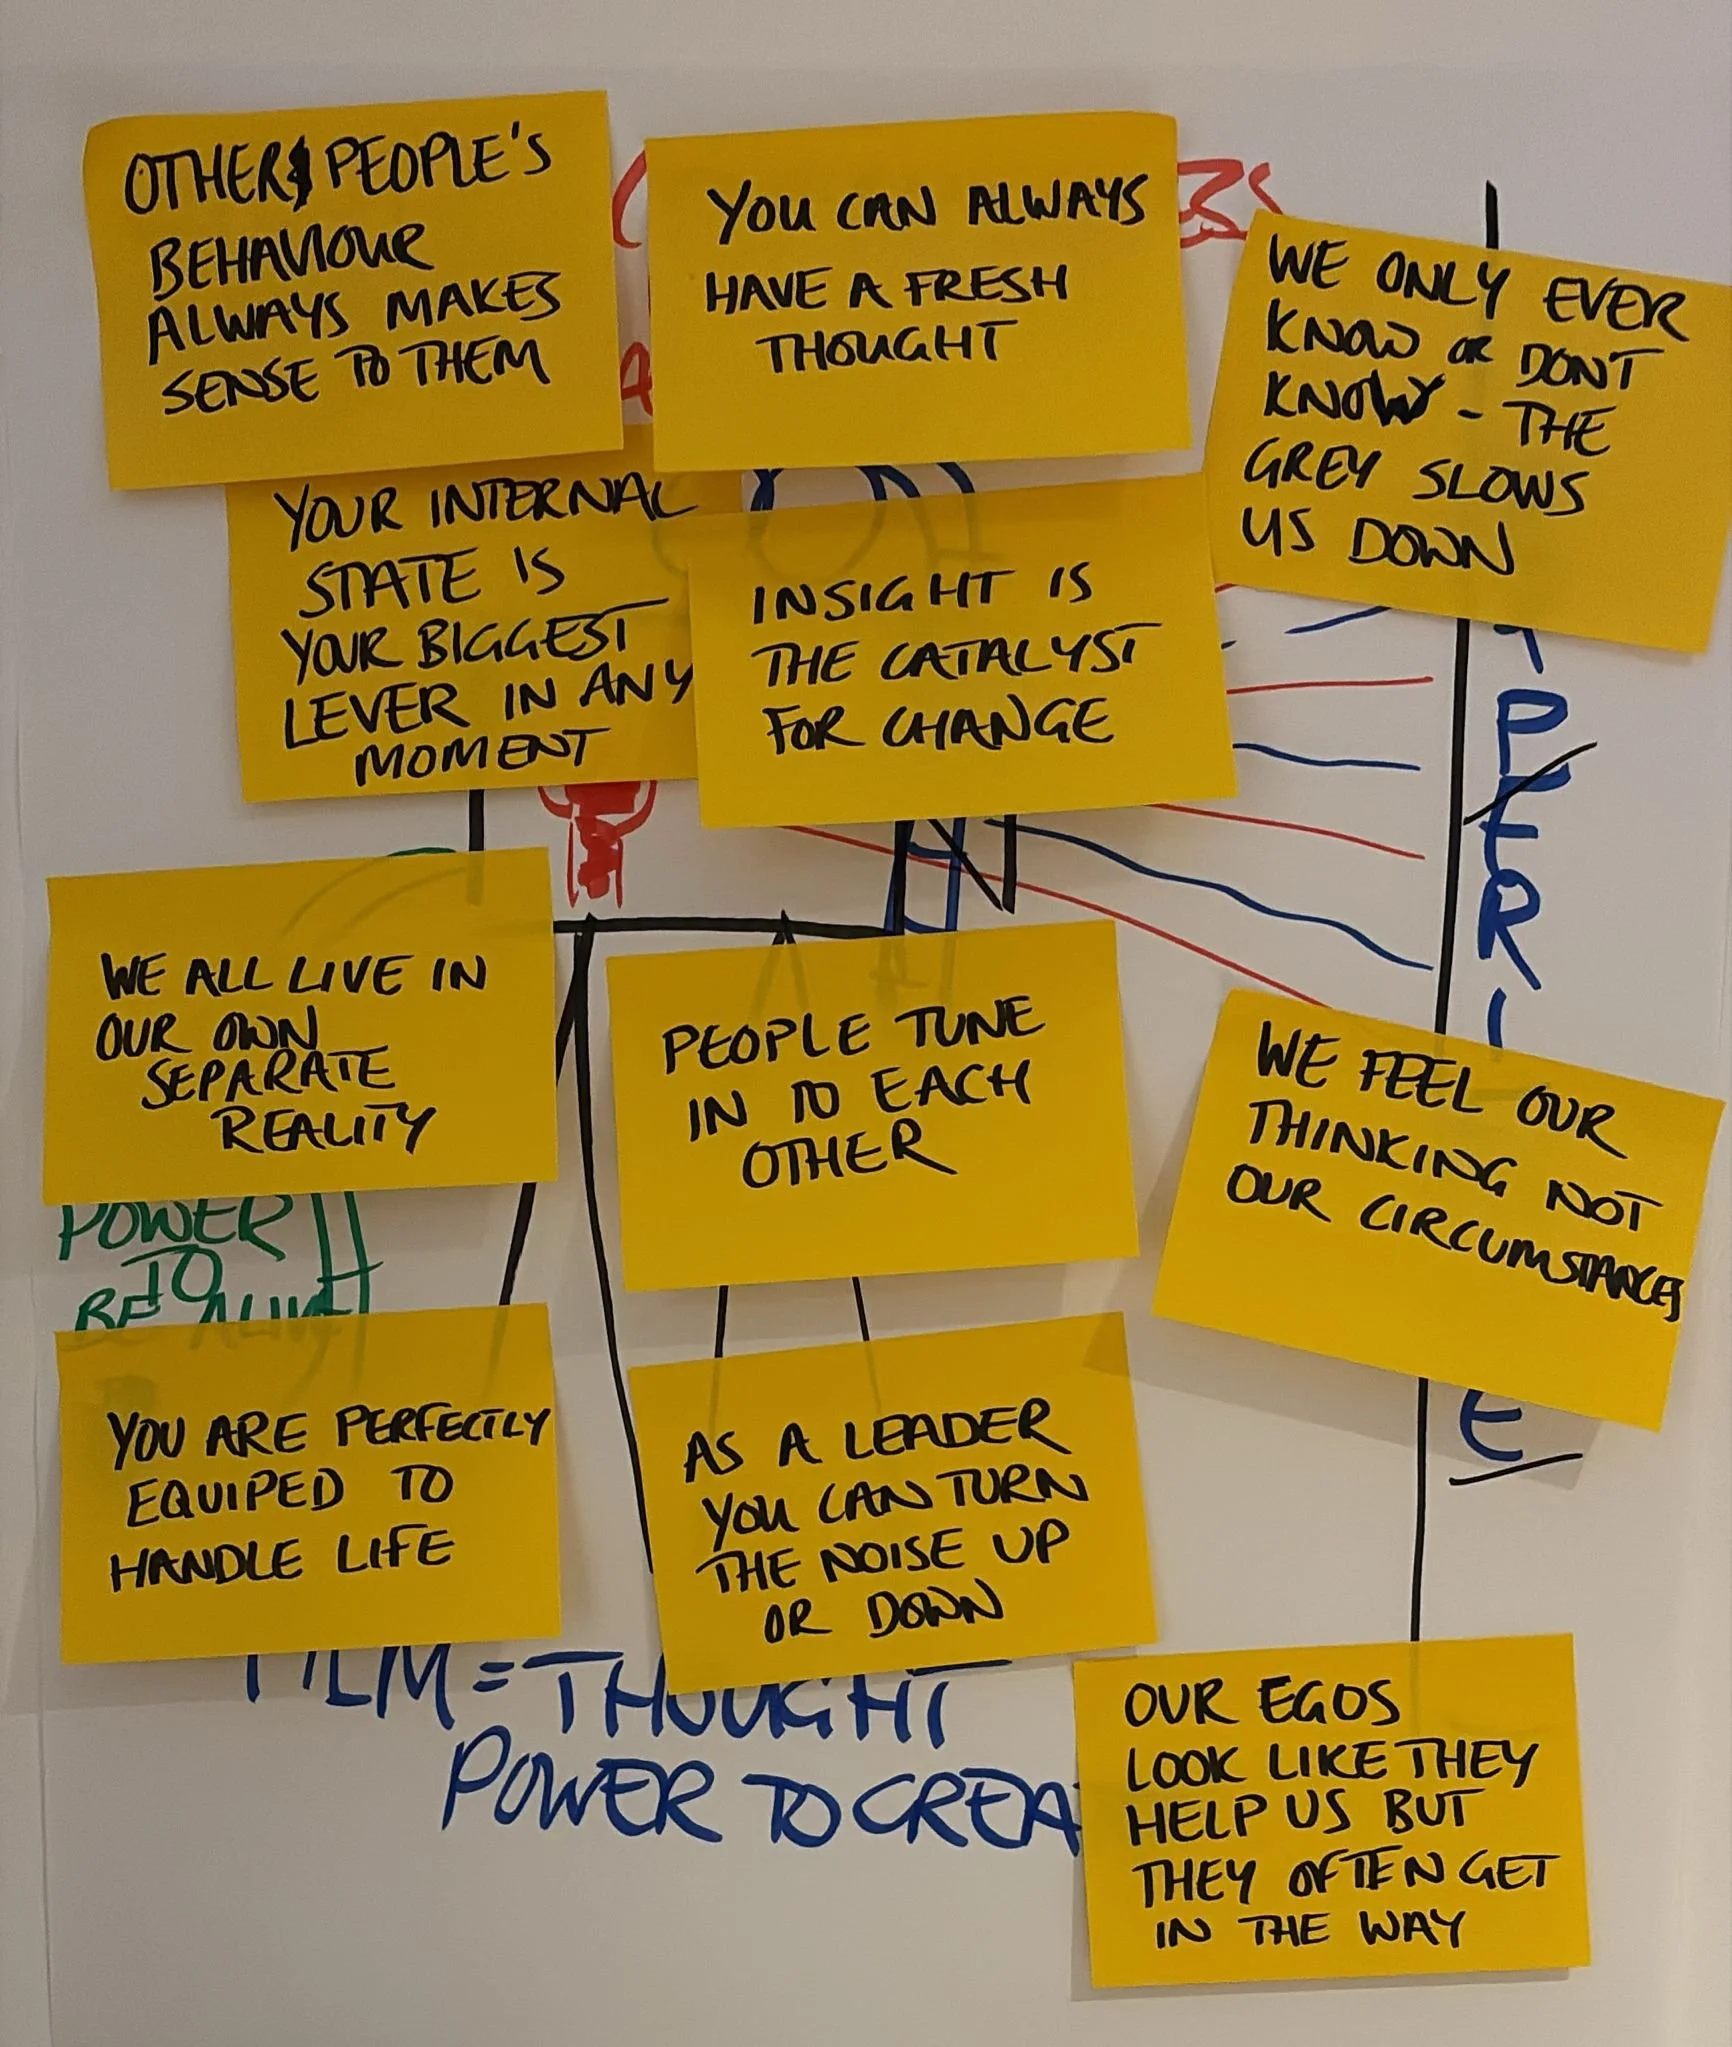 OTHER PEOPLE'S
BEHAVIOUR
ALWAYS MAKES
SENSE TO THEM
YOU CAN ALWAYS
HAVE A FRESH
THOUGHT
WE ONLY EVER
KNOW OR DON'T
KNOW - THE
GREY SLOWS
US DOWN
YOUR INTERNAL
STATE IS
YOUR BIGGEST
LEVER IN ANY
MOMENT
INSIGHT IS
THE CATALYST
FOR CHANGE
WE ALL LIVE IN
OUR OWN
SEPARATE
REALITY
PEOPLE TUNE
IN TO EACH
OTHER
WE FEEL OUR
THINKING NOT
OUR CIRCUMSTANCES
POWER
TO
BE ALIVE
YOU ARE PERFECTLY
EQUIPED TO
HANDLE LIFE
AS A LEADER
YOU CAN TURN
THE NOISE UP
OR DOWN
FILM = THOUGHT
POWER TO CREA
OUR EGOS
LOOK LIKE THEY
HELP US BUT
THEY OFTEN GET
IN THE WAY